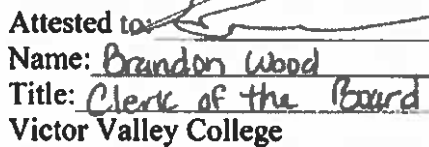 Attested to:
Name: Brandon Wood
Title: Clerk of the Board
Victor Valley College